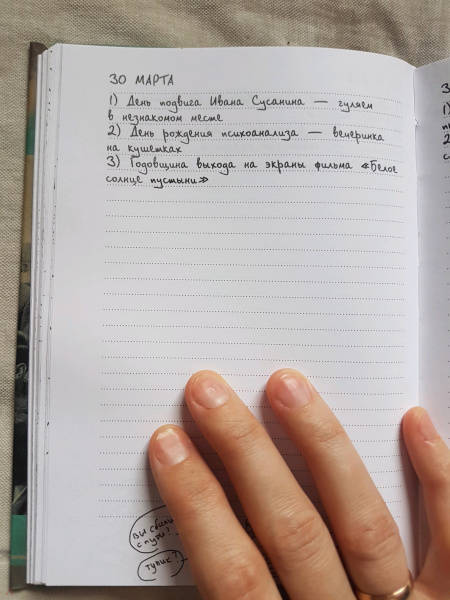 30 МАРТА
1) День подвига Ивана Сусанина — гуляем
в незнакомом месте
2) День рождения психоанализа — вечеринка
на кушетках
3) Годовщина выхода на экраны фильма «Белое
солнце пустыни»
3
1)
2
с
ВЫ СБИЛИ
С ПУТИ?
ТУПИК?